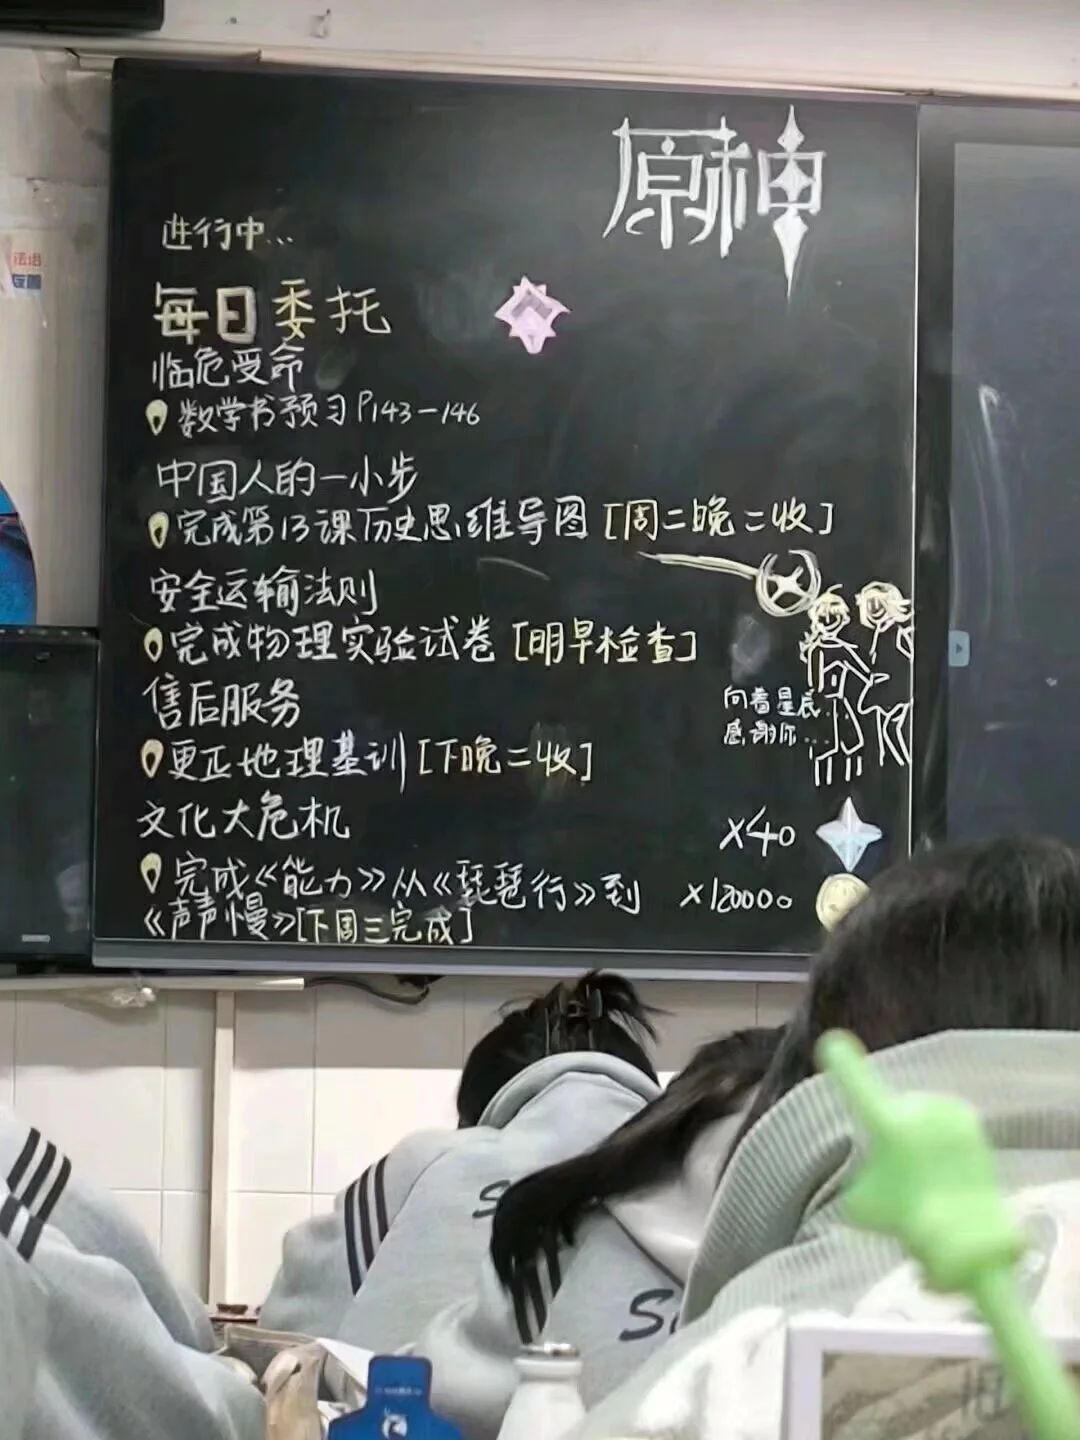 原神
进行中...
每日委托
临危受命
数学书预习P143-146
中国人的一小步
完成第13课历史思维导图[周二晚二收]
安全运输法则
完成物理实验试卷[明早检查]
售后服务
向着星辰
感谢你...
更正地理基训[下晚二收]
文化大危机
x40
完成《能力》从《琵琶行》到
x120000
《声声慢》[下周三完成]